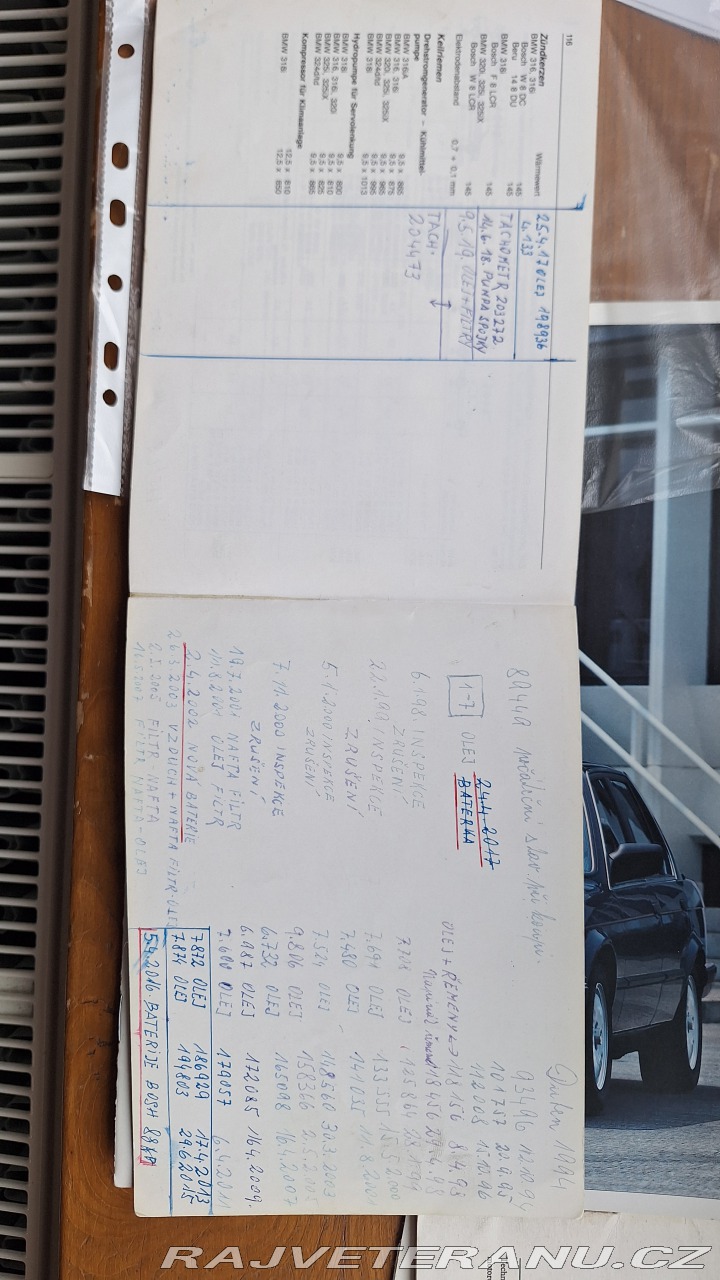 116
Zündkerzen Wärmewert
BMW 316, 316i
Bosch W 8 DC 145
Beru 14 8 DU 145
BMW 318i
Bosch F 8 LCR 145
BMW 320i, 325i, 325iX
Bosch W 8 LCR 145
Elektrodenabstand 0,7 + 0,1 mm
Keilriemen
Drehstromgenerator – Kühlmittel-
pumpe
BMW 316iA 9,5 x 865
BMW 316, 316i 9,5 x 875
BMW 320i, 325i, 325iX 9,5 x 965
BMW 324d/td 9,5 x 985
BMW 318i 9,5 x 1013
Hydropumpe für Servolenkung
BMW 318i 9,5 x 800
BMW 316, 316i, 320i 9,5 x 810
BMW 325i, 325iX 9,5 x 825
BMW 324d/td 9,5 x 865
Kompressor für Klimaanlage
12,5 x 810
BMW 318i 12,5 x 850
25.4.17 OLEJ 198936
4.133
TACHOMETR 203272
14.6.18. PUMPA SPOJKY
9.5.19. OLEJ+FILTRY
TACH.
204473
89449 počáteční stav při koupi. Duben 1994
93496 12.10.94
101757 20.9.95
24.4.2017 112008 13.12.96
BATERKA
1-7 OLEJ OLEJ + ŘEMENY 118156 8.4.98
6.1.98 INSPEKCE
ZRUŠENÍ 7.708 OLEJ
22.1.99 INSPEKCE 7.691 OLEJ 133555 15.5.2000
ZRUŠENÍ 7.480 OLEJ 141035
5.1.2000 INSPEKCE 7.524 OLEJ 30.3.2003
ZRUŠENÍ 9.806 OLEJ 158366
7.11.2000 INSPEKCE 6.732 OLEJ 165098 16.4.2007
ZRUŠENÍ 6.987 OLEJ 172085 16.4.2009.
NAFTA FILTR 7.600 OLEJ 179057 6.4.2011
OLEJ FILTR
2.4.2002 NOVÁ BATERIE 7.872 OLEJ 186929 17.4.2013
26.3.2003 VZDUCH + NAFTA FILTR-OLEJ 7.874 OLEJ 194803 29.6.2015
2.5.2005 FILTR NAFTA
16.5.2007 FILTR NAFTA-OLEJ 5.4.2016. BATERIJE BOSH
RAJVETERANU.CZ